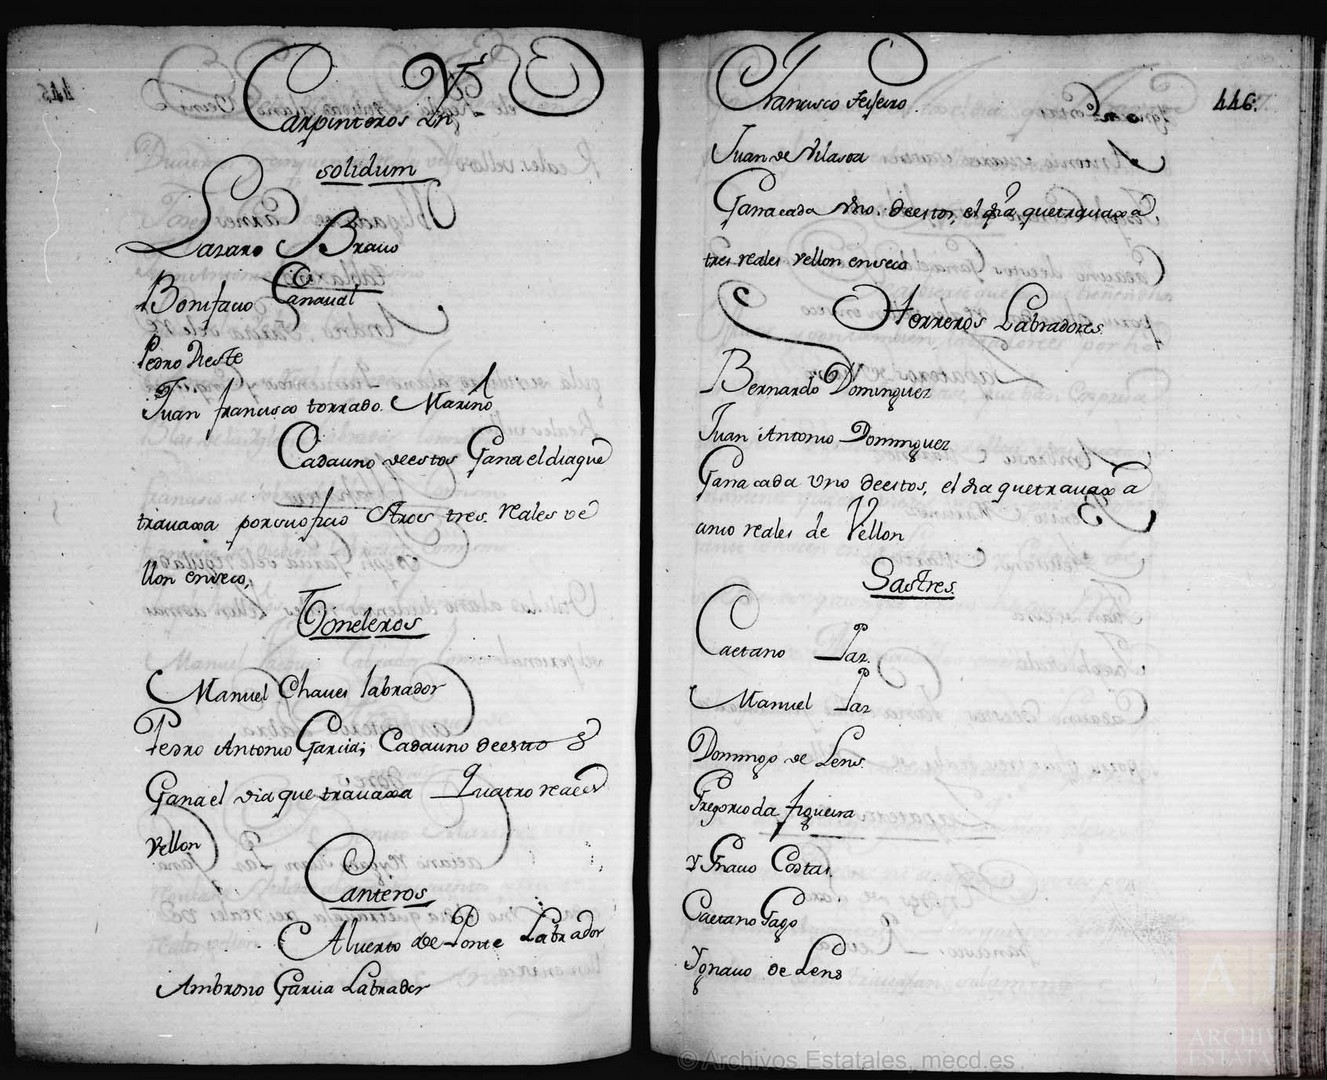 Carpinteros in
solidum
Lazaro Bravo
Bonifacio Canaval
Pedro Dieste
Juan francisco torrado. Mariño
Cadauno deestos Gana el dia que
travaxa por su oficio tres reales ve
llon en seco,
Toneleros
Manuel Chaves labrador
Pedro Antonio Garcia; Cadauno deesto s
Gana el dia que travaxa Quatro reales
vellon
Canteros
Alverto de Ponte Labrador
Ambrosio Garcia Labrador
446.
Francisco Feiseiro.
Juan de Vilasoa
Gana cada vno. deestos, el dia que travaxa
tres reales vellon en seco
Herreros Labradores
Bernardo Dominguez
Juan Antonio Dominguez
Gana cada vno deestos, el dia que travaxa a
cinco reales de Vellon
Sastres.
Caetano Paz.
Manuel Paz
Domingo de Lens.
Gregorio da figueira
Ygnacio Costas.
Caetano Gago
Ygnacio de Lens
© Archivos Estatales, mecd.es
ARCHIV
ESTATA